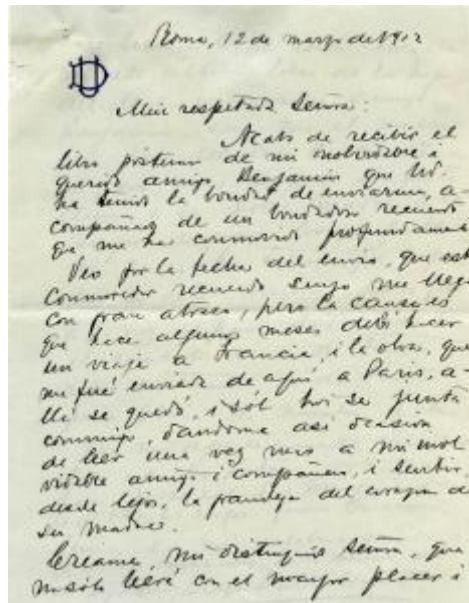 Roma, 12 de marzo de 1912
Mui respetada Señora:
Acabo de recibir el
libro póstumo de mi inolvidable i
querido amigo Benjamin que Ud.
ha tenido la bondad de enviarme, a-
compañado de un bondadoso recuerdo
que me ha conmovido profundamente
Veo por la fecha del envio, que este
conmovedor recuerdo suyo me llega
con gran atraso, pero la causa es
que hace algunos meses debí hacer
un viaje a Francia, i la obra, que
me fué enviada de aquí a Paris, a-
llí se quedó, i sólo hoi se junta
conmigo, dandome así ocasion
de leer una vez mas a mi inol
vidable amigo i compañero, i sentir
desde lejos, la franqueza del corazon de
su madre.
Créame, mi distinguida señora, que
no sólo leeré con el mayor placer i